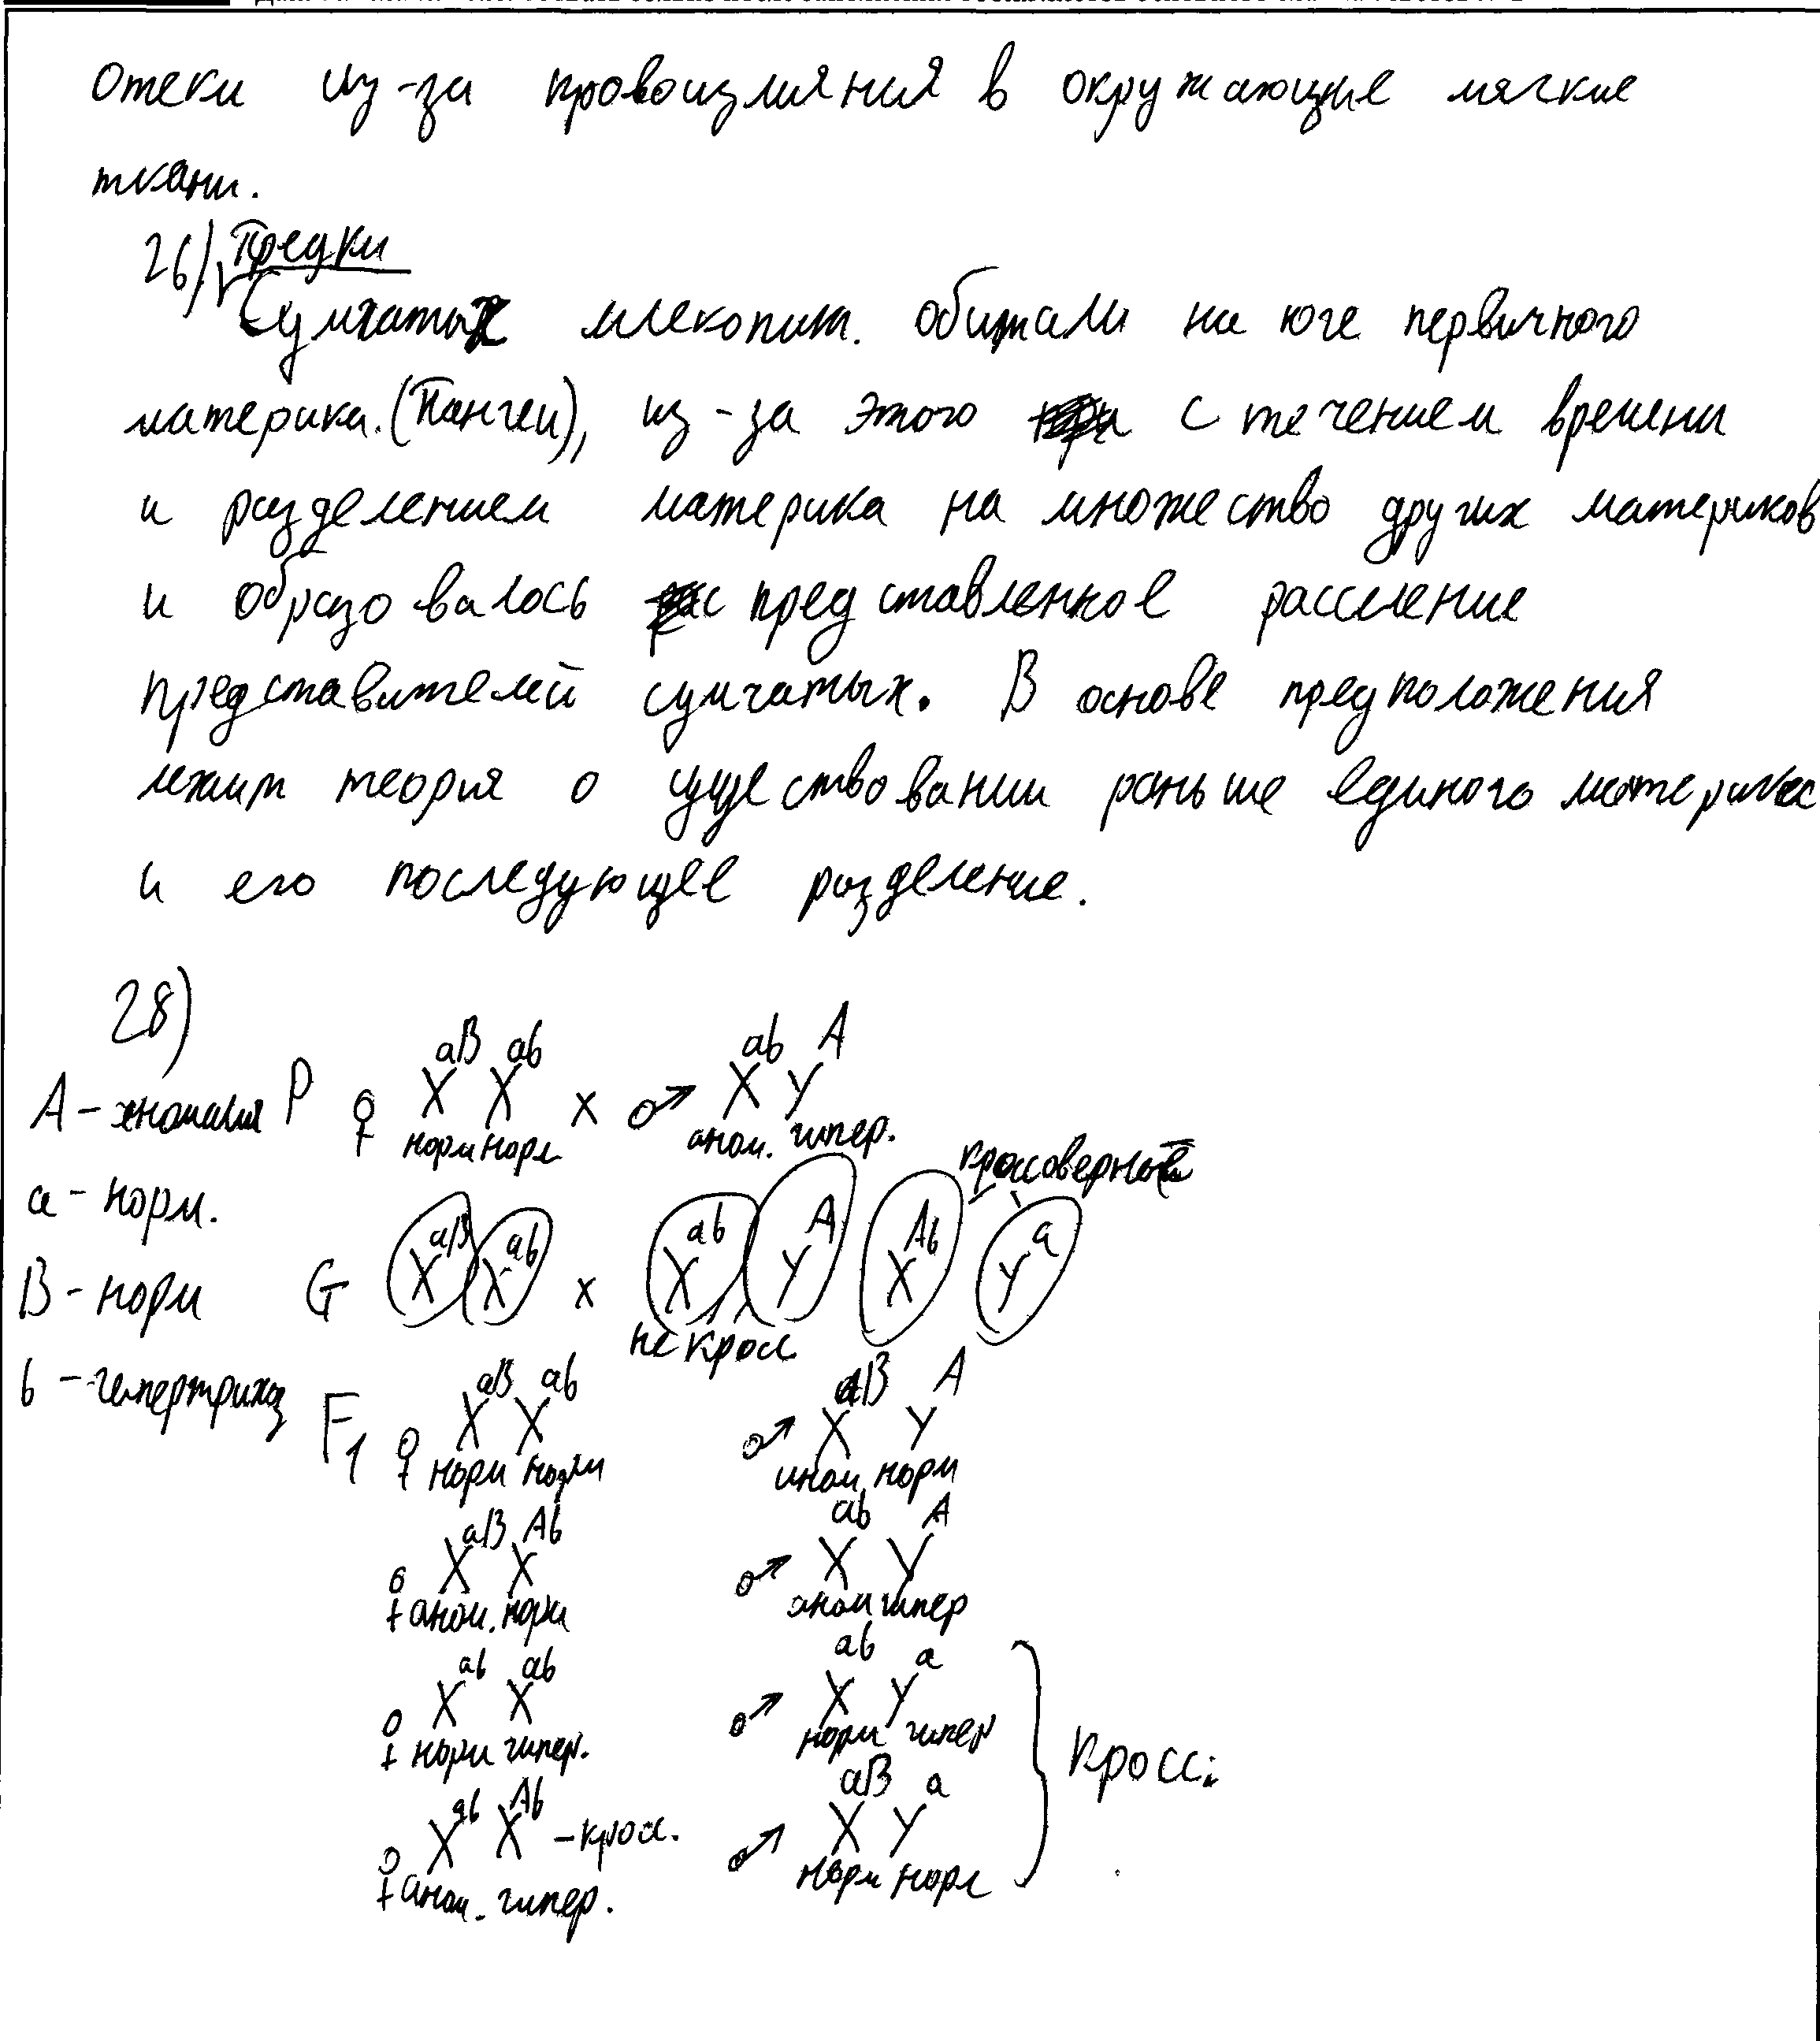 отеки из-за кровоизлияния в окружающие мягкие
ткани.
26) Предки
Сумчатых млекопит. обитали на юге первичного
материка.(Пангеи), из-за этого с течением времени
и разделением материка на множество других материков
и образовалось представленное расселение
представителей сумчатых. В основе предположения
лежит теория о существовании раньше единого материка
и его последующее разделение.
28)
A - аномалия P ♀ X^aB X^ab x ♂ X^ab Y^A
норм норм аном. гипер.
a - норм. кроссоверные
B - норм G X^aB X^ab x X^ab Y^A X^Ab Y^a
не кросс
b - гипертрихоз F1 ♀ X^aB X^ab ♂ X^aB Y^A
норм норм аном. норм
♀ X^aB X^Ab ♂ X^ab Y^A
аном. норм аном гипер
♀ X^ab X^ab ♂ X^ab Y^a
норм гипер. норм гипер
кросс.
♀ X^ab X^Ab - кросс. ♂ X^aB Y^a
аном. гипер. норм норм